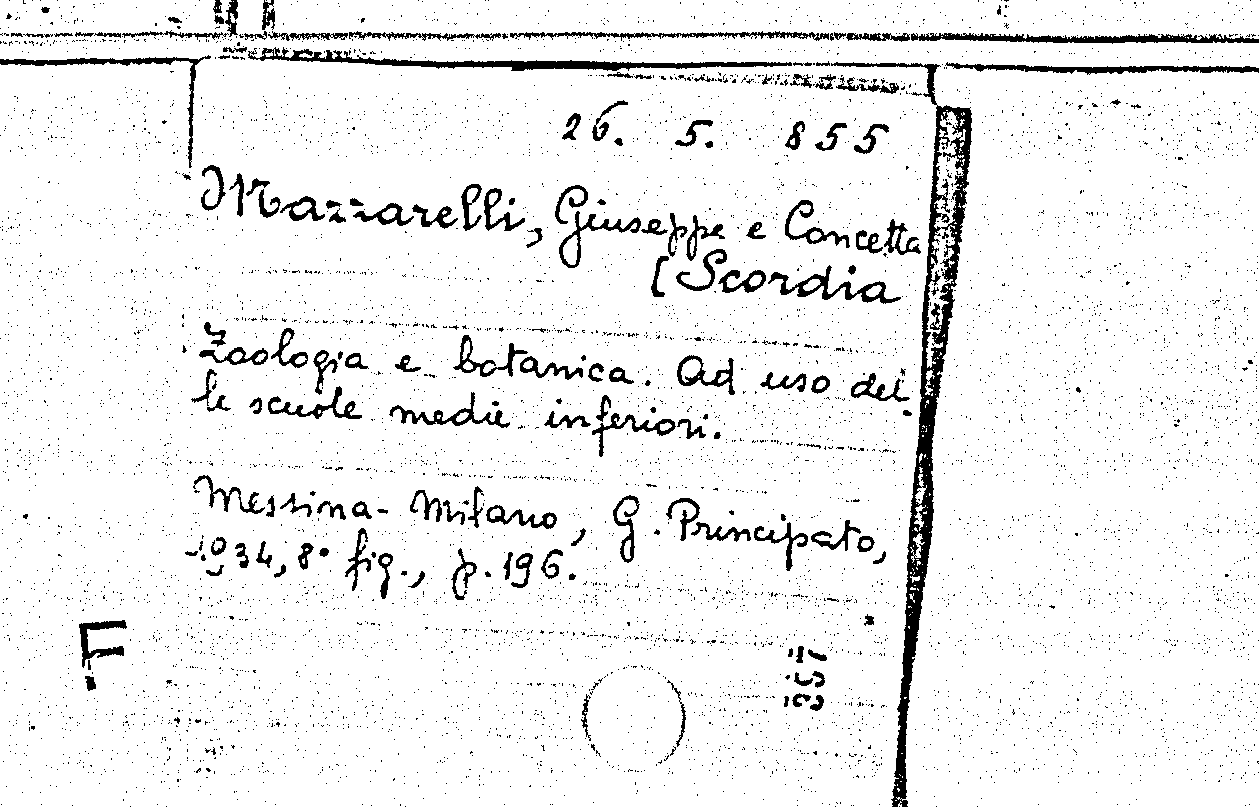 26. 5. 855
Mazzarelli, Giuseppe e Concetta
[Scordia
Zoologia e botanica. Ad uso del-
le scuole medie inferiori.
Messina-Milano, G. Principato,
1934, 8° fig., p. 196.
F
357